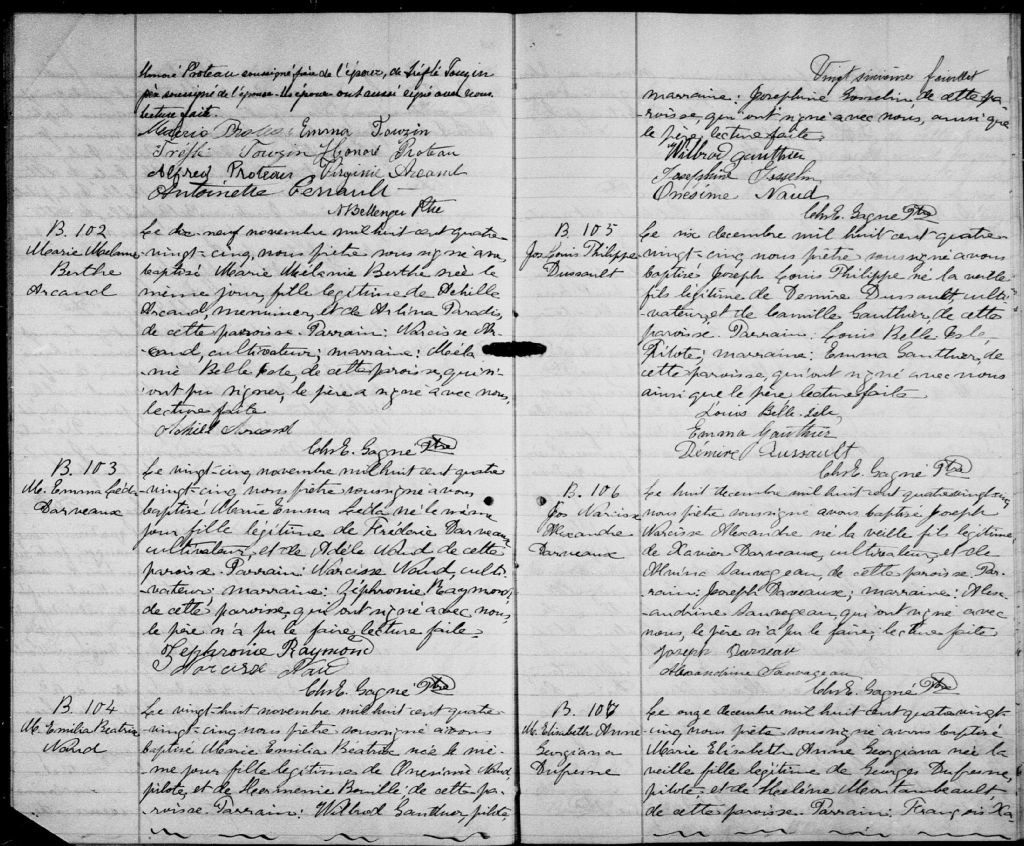 Honoré Proteau soussigné frère de l'époux, de Tréflé Touzin
père soussigné de l'épouse. Les époux ont aussi signé avec nous
lecture faite.
Emma Touzin
Treflé Touzin Honoré Proteau
Alfred Proteau Virginie Arcand
Antoinette Perrault
N Bellenger Ptre
B. 102
Marie Melanie
Berthe
Arcand
Le dix neuf novembre mil huit cent quatre-
vingt-cinq, nous prêtre soussigné avons
baptisé Marie Mélanie Berthe née le
même jour, fille légitime de Achille
Arcand, menuisier, et de Arlina Paradis,
de cette paroisse. Parrain: Narcisse Ar-
cand, cultivateur; marraine: Méla-
nie Belle Isle, de cette paroisse, qui n'
ont pu signer, le père a signé avec nous,
lecture faite.
Achill Arcand
Chs E. Gagné Ptre
B. 103
M. Emma Léda
Darveaux
Le vingt-cinq novembre mil huit cent quatre
vingt-cinq, nous prêtre soussigné avons
baptisé Marie Emma Leda née le même
jour fille légitime de Fréderic Darveaux
cultivateur, et de Adèle Naud de cette
paroisse. Parrain: Narcisse Naud, culti-
vateur; marraine: Zéphronie Raymond,
de cette paroisse, qui ont signé avec nous,
le père n'a pu le faire, lecture faite
Zephronie Raymond
Narcisse Naud
Chs E. Gagné Ptre
B. 104
M. Emilia Beatrix
Naud
Le vingt-huit novembre mil huit cent quatre-
vingt-cinq nous prêtre soussigné avons
baptisé Marie Emilia Béatrix née le mê-
me jour fille légitime de Onésime Naud,
pilote, et de Hermenie Bouillé de cette pa-
roisse. Parrain: Wilbrod Gauthier, pilote,
Vingt sixième feuillet
marraine: Josephine Gosselin, de cette pa-
roisse, qui ont signé avec nous, ainsi que
le père, lecture faite
Wilbrod Gauthier
Josephine Gosselin
Onésime Naud
Chs E. Gagné Ptre
B. 105
Jos Louis Philippe
Dussault
Le six decembre mil huit cent quatre-
vingt-cinq nous prêtre soussigné avons
baptisé Joseph Louis Philippe né la veille
fils légitime de Demire Dussault culti-
vateur, et de Camille Gauthier, de cette
paroisse. Parrain: Louis Belle Isle,
Pilote; marraine: Emma Gauthier, de
cette paroisse, qui ont signé avec nous
ainsi que le père lecture faite
Louis Belle-Isle,
Emma Gauthier
Demire Dussault
Chs E. Gagné Ptre
B. 106
Jos Narcisse
Alexandre
Darveaux
Le huit decembre mil huit cent quatre vingt cinq
nous prêtre soussigné avons baptisé Joseph
Narcisse Alexandre né la veille fils légitime
de Xavier Darveaux, cultivateur, et de
Alvina Sauvageau, de cette paroisse. Par-
rain: Joseph Darveaux; marraine: Alex-
andrine Sauvageau, qui ont signé avec
nous, le père n'a pu le faire, lecture faite
Joseph Darveau
Alexandrine Sauvageau
Chs E. Gagné Ptre
B. 107
M. Elisabeth Anne
Georgiana
Dufresne
Le onze decembre mil huit cent quatre vingt-
cinq, nous prêtre soussigné avons baptisé
Marie Elisabeth Anne Georgiana née la
veille fille légitime de Georges Dufresne,
pilote et de Hélène Montambeault,
de cette paroisse. Parrain: François Xa-